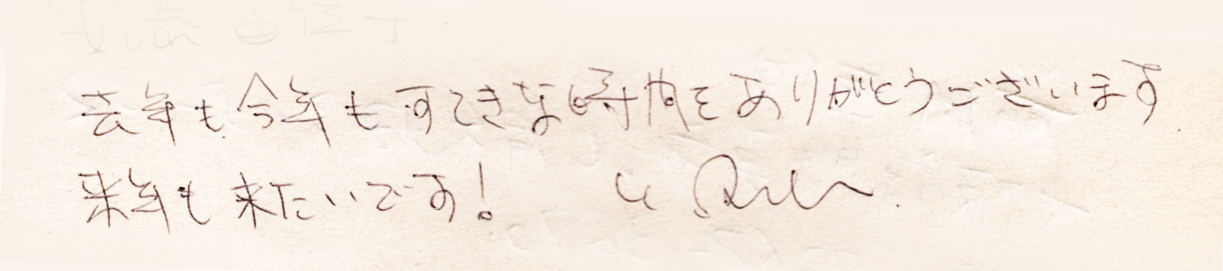 去年も今年もすてきな時間をありがとうございます
来年も来たいです!